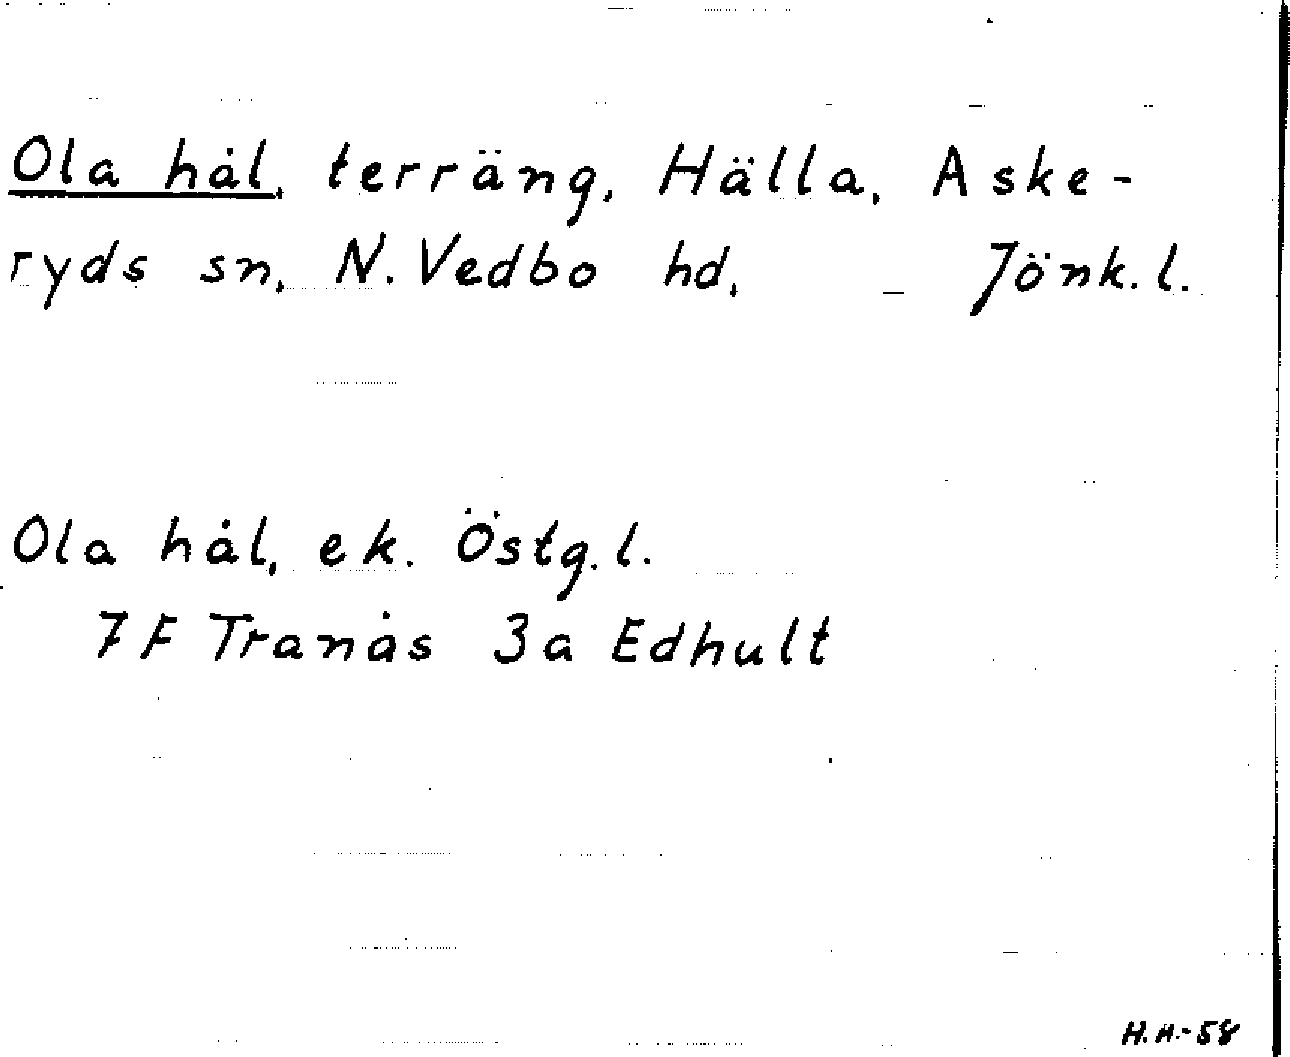 Ola hål, terräng, Hälla, Aske-
ryds sn, N. Vedbo hd, Jönk. l.
Ola hål, ek. Östg. l.
7 F Tranås 3a Edhult
H.H.-58